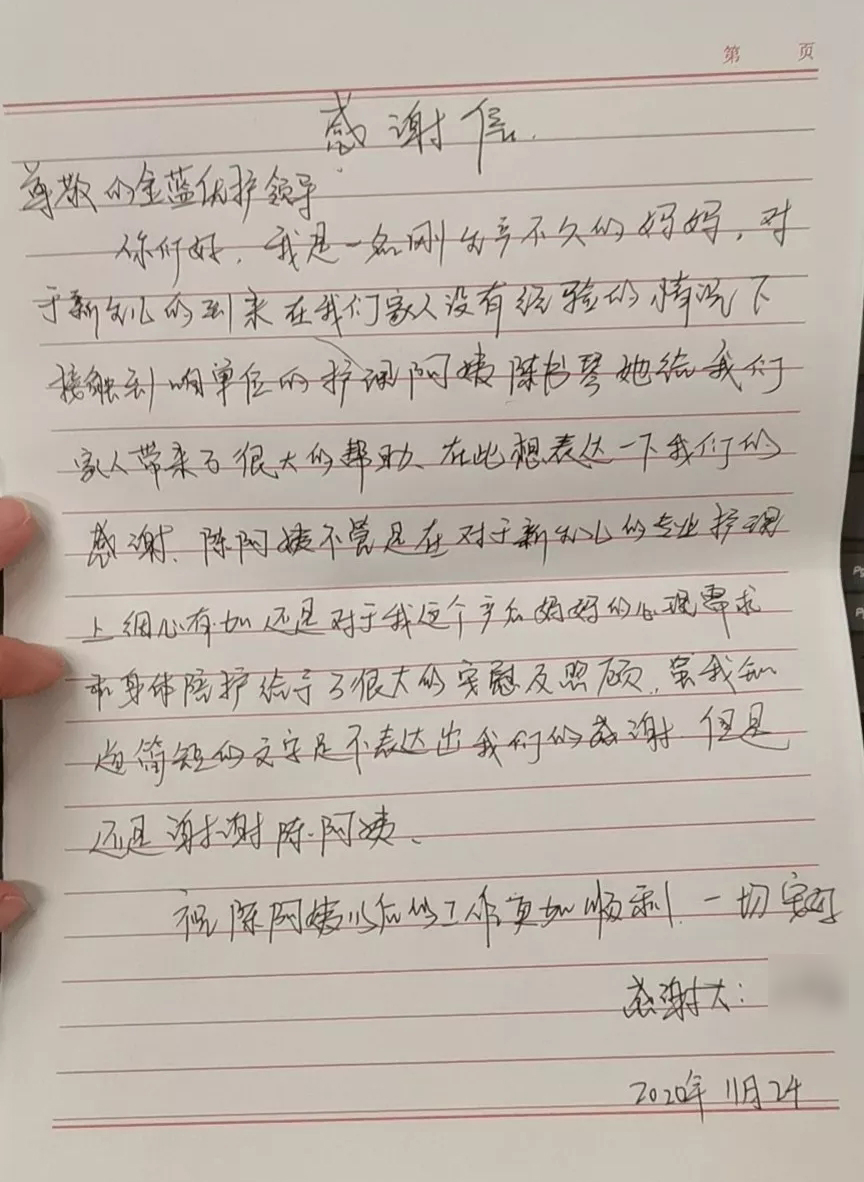 第 页
感谢信.
尊敬的金蓝优护领导
你们好，我是一名刚生产不久的妈妈，对
于新生儿的到来在我们家人没有经验的情况下
接触到咱单位的护理阿姨陈书琴她给我们
家人带来了很大的帮助、在此想表达一下我们的
感谢、陈阿姨不管是在对于新生儿的专业护理
上细心有加还是对于我这个产后妈妈的心理需求
和身体陪护给予了很大的安慰及照顾，虽我知
道简短的文字足不表达出我们的感谢、但是
还是谢谢陈阿姨、
祝陈阿姨以后的工作更加顺利、一切安好
感谢人：
2020年11月24